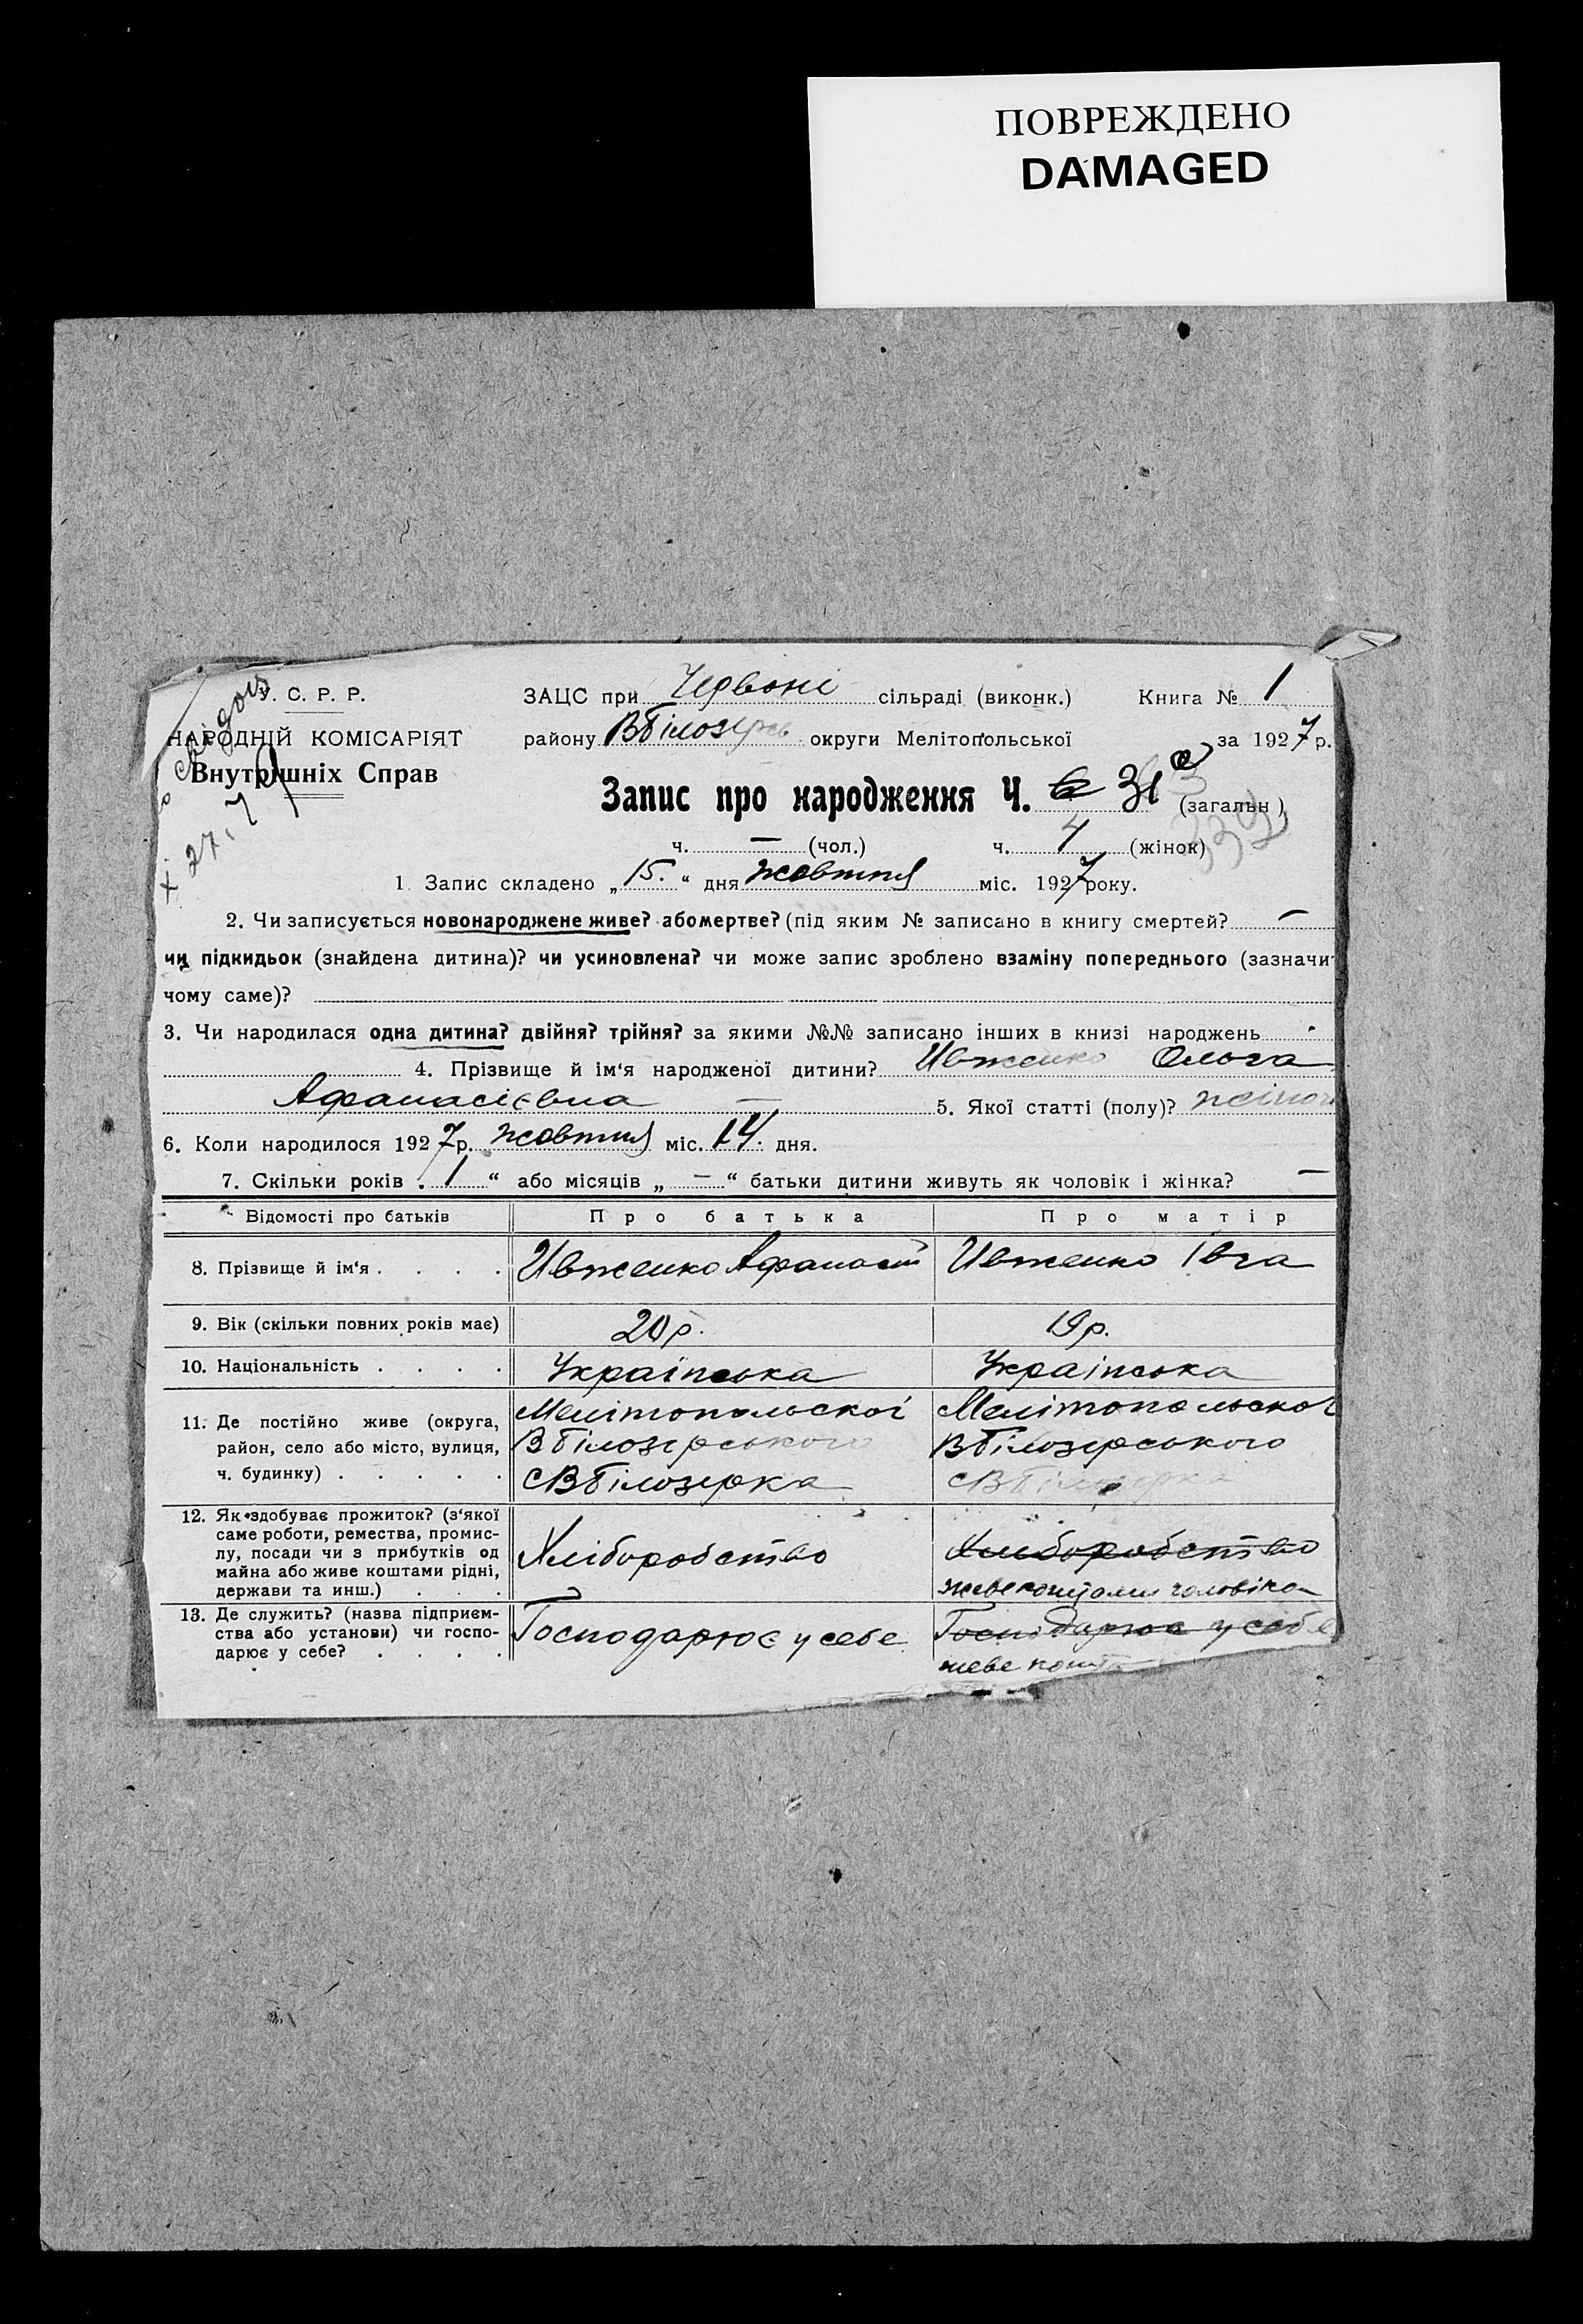 ПОВРЕЖДЕНО
DAMAGED
У. С. Р. Р.
НАРОДНІЙ КОМІСАРІЯТ
Внутрішніх Справ
27.
ЗАЦС при Червоні сільраді (виконк.) Книга № 1
району ВБілозерсь округи Мелітопольської за 1927 р.
Запис про народження Ч. 31 (загальн)
ч. — (чол.) ч. 4 (жінок)
1 Запис складено „ 15. “ дня жовтня міс. 1927 року.
2. Чи записується новонароджене живе? або мертве? (під яким № записано в книгу смертей? —
чи підкидьок (знайдена дитина)? чи усиновлена? чи може запис зроблено взаміну попереднього (зазначит
чому саме)?
3. Чи народилася одна дитина? двійня? трійня? за якими №№ записано інших в книзі народжень
4. Прізвище й ім‘я народженої дитини? Ивженко Ольга
Афанасієвна — 5. Якої статті (полу)? жіноч
6. Коли народилося 1927 р. жовтня міс. 14. дня.
7. Скільки років 1 “ або місяців „ — “ батьки дитини живуть як чоловік і жінка? —
Відомості про батьків Про батька Про матір
8. Прізвище й ім‘я . . . . Ивженко Афанасій Ивженко Івга
9. Вік (скільки повних років має) 20 р. 19 р.
10. Національність . . . . Українська Українська
11. Де постійно живе (округа,
район, село або місто, вулиця,
ч. будинку) . . . . .
Мелітопольскоі
ВБілозерського
с ВБілозерка
Мелітопольскоі
ВБілозерського
с ВБілозерка
12. Як здобуває прожиток? (з‘якої
саме роботи, ремества, промис-
лу, посади чи з прибутків од
майна або живе коштами рідні,
держави та инш.) . . .
Хліборобство
Хліборобство
живе коштами чоловіка
13. Де служить? (назва підприєм-
ства або установи) чи госпо-
дарює у себе? . . . .
Господарює у себе
Господарює у себе
живе кошт